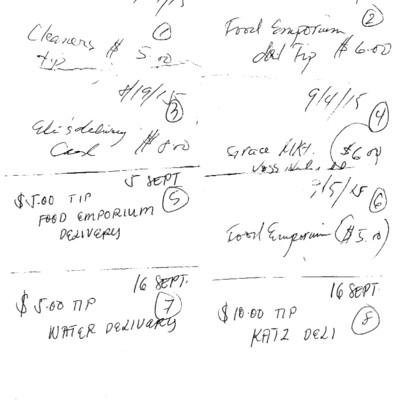 ①
Cleaners $ 5.00
tip
②
Food Emporium
del Tip $6.00
8/19/15
③
Eli's delivery $8.00
Cash
9/4/15
④
Grace Mkt. $6.00
5 SEPT
$5.00 TIP ⑤
FOOD EMPORIUM
DELIVERY
9/5/15
⑥
Food Emporium ($5.00)
16 SEPT.
$5.00 TIP ⑦
WATER DELIVERY
16 SEPT.
$10.00 TIP ⑧
KATZ DELI